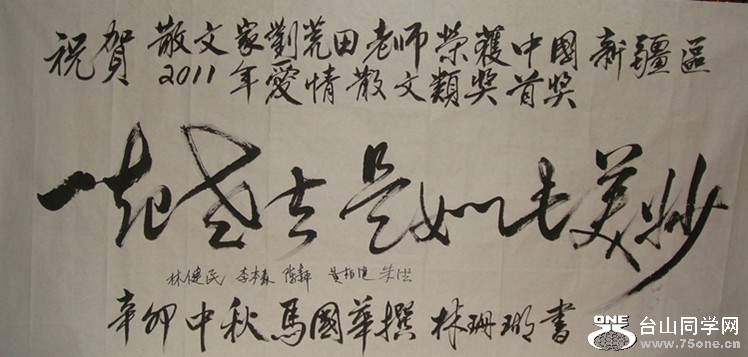 祝賀 散文家劉荒田老师荣獲中國 新疆區
2011 年愛情散文類奬首奬
一起老去是如此美妙
林健民
辛卯中秋馬國華撰 林珊瑚書
ONE
台山同学网
www.75one.cn